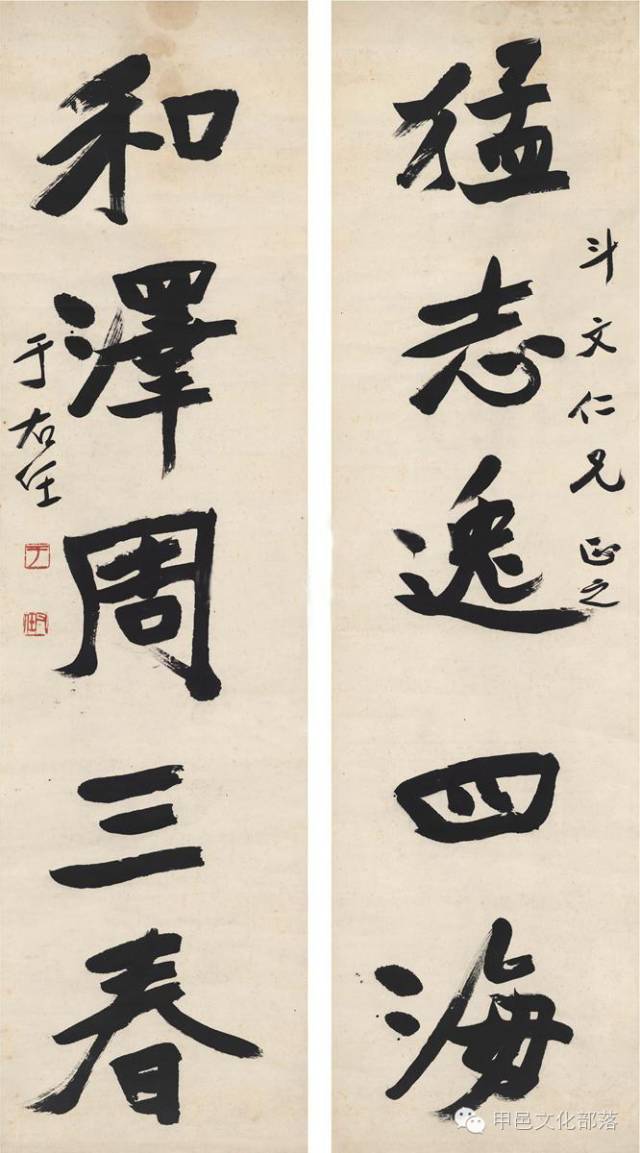 斗文仁兄正之
猛志逸四海
和澤周三春
于右任
甲邑文化部落